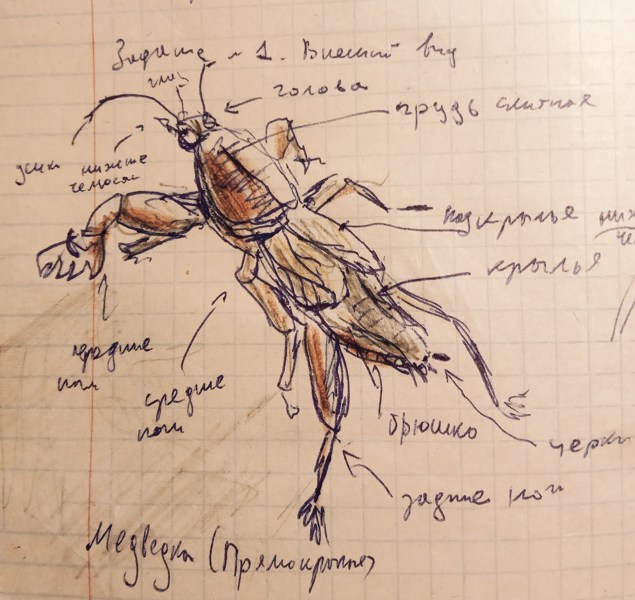 Задание №1. Внешний вид
глаз
голова
грудь слитная
усик
нижние
челюсти
подкрылье
крылья
передние
ноги
средние
ноги
брюшко
церки
задние ноги
Медведка (Прямокрылые)